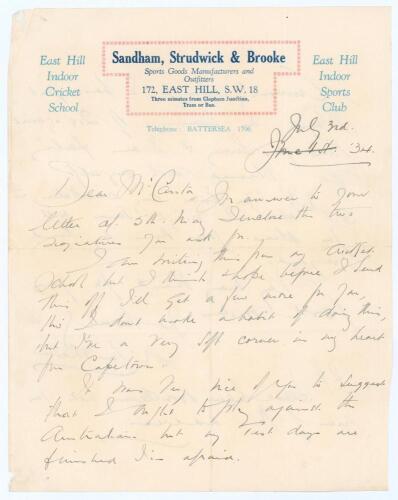 East Hill
Indoor
Cricket
School
Sandham, Strudwick & Brooke
Sports Goods Manufacturers and
Outfitters
172, EAST HILL, S.W. 18
Three minutes from Clapham Junction,
Tram or Bus.
East Hill
Indoor
Sports
Club
Telephone: BATTERSEA 1706
July 3rd.
34.
Dear In answer to your
letter of 5th. May I enclose the two
signatures you ask for.
I am writing this from my cricket
school but I think & hope before I send
this off I'll get a few more for you,
tho' I don't make a habit of doing this,
but I've a very soft corner in my heart
for Capetown.
It was very nice of you to suggest
that I ought to play against the
Australians but my Test days are
finished I'm afraid.